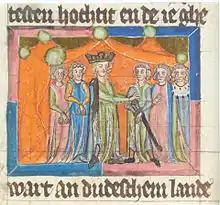 teſten hochtit en de ie ghe
wart an dudeſchem lande